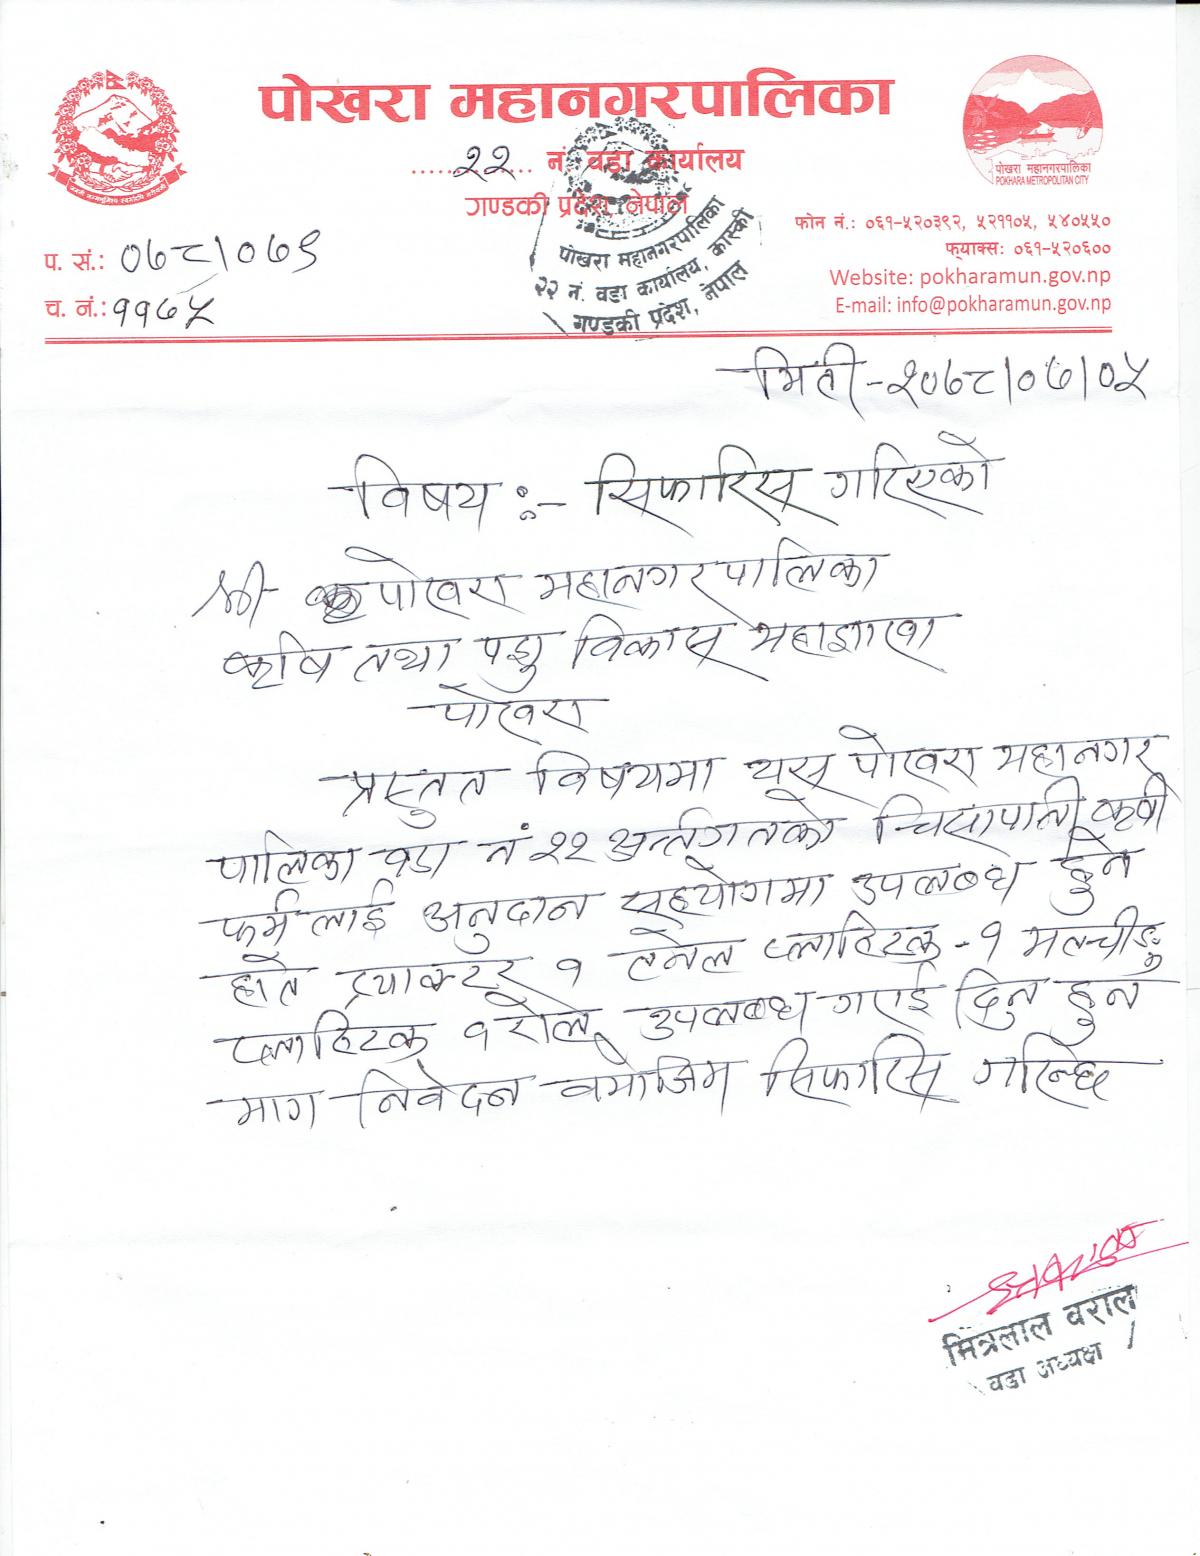 पोखरा महानगरपालिका
२२ नं. वडा कार्यालय
गण्डकी प्रदेश, नेपाल
पोखरा महानगरपालिका
POKHARA METROPOLITAN CITY
फोन नं.: ०६१-५२०३९२, ५२११०५, ५४०५५०
फ्याक्स: ०६१-५२०६००
Website: pokharamun.gov.np
E-mail: info@pokharamun.gov.np
प. सं.: ०७८/०७९
च. नं.: ११७५
पोखरा महानगरपालिका
२२ नं. वडा कार्यालय, कास्की
गण्डकी प्रदेश, नेपाल
मिती-२०७८/०७/०५
विषय :- सिफारिस गरिएको
श्री पोखरा महानगरपालिका
कृषि तथा पशु विकास महाशाखा
पोखरा
प्रस्तुत विषयमा यस पोखरा महानगर
पालिका वडा नं २२ अर्न्तगतको चिसापानी कृषी
फर्म लाई अनुदान सहयोगमा उपलब्ध हुने
हाते ट्याक्टर १ टनेल प्लाष्टिक - १ मलचीङ
प्लाष्टिक १ रोल उपलब्ध गराई दिनु हुन
माग निवेदन बमोजिम सिफारिस गरिन्छ
मित्रलाल बराल
वडा अध्यक्ष